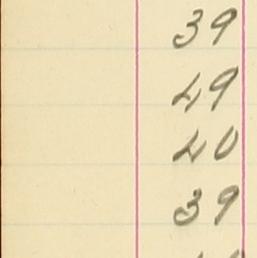 39
49
40
39